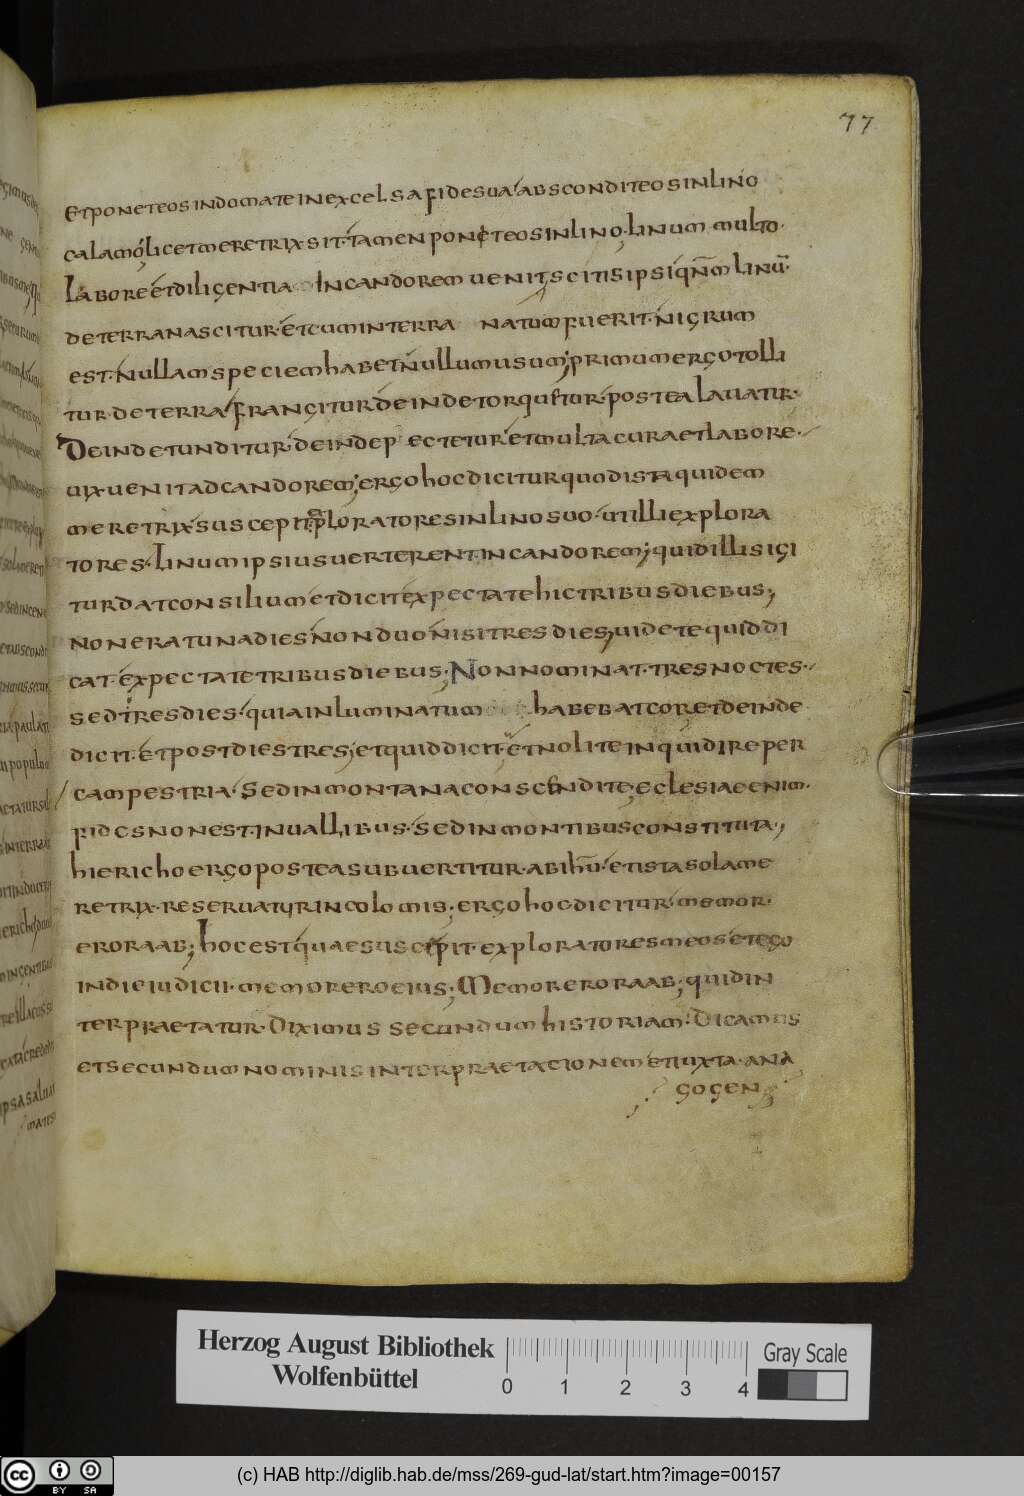 77
et ponet eos in domate in excelsa fide sua abscondit eos in lino
calamo licet meretrix sit tamen ponet eos in lino linum multo
labore et diligentia In candorem venit scitis ipsi qnm linu
de terra nascitur et cum in terra natum fuerit nigrum
est nullam speciem habet nullum usum; primum ergo tolli
tur de terra frangitur deinde torquetur postea lavatur
Deinde tunditur deinde pectetur et multa cura et labore
vix venit ad candorem; ergo hoc dicitur quod ista quidem
meretrix suscepit exploratores in lino suo ut illi explora
tores linum ipsius verterent in candorem; quid illis igi
tur dat consilium et dicit expectate hic tribus diebus;
non erat una dies non duo nisi tres dies; videte quid di
cat expectate tribus diebus; Non nominat tres noctes
sed tres dies quia inluminatum habebat cor et deinde
dicit et post dies tres; et quid dicit et nolite inquid ire per
campestria sed in montana conscendite; eclesiae enim
fides non est in vallibus sed in montibus constituta;
hiericho ergo postea subvertitur abihu et ista sola me
retrix reservatur incolomis; ergo hoc dicitur memor
ero raab; hoc est quae suscepit exploratores meos et ego
in die iudicii memor ero eius; Memor ero raab; quid in
terpraetatur Diximus secundum historiam Dicamus
et secundum nominis interpraetacionem et iuxta ana
gogen
Herzog August Bibliothek
Wolfenbüttel
0 1 2 3 4
Gray Scale
cc BY SA
(c) HAB http://diglib.hab.de/mss/269-gud-lat/start.htm?image=00157